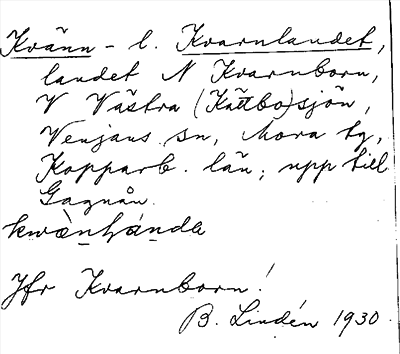 Kvänn - l. Kvarnlandet,
landet N Kvarnborn,
V Västra (Kättbo)sjön,
Venjans sn, Mora tg,
Kopparb. län; upp till
Gagnån.
kwæ̀nhánda
Jfr Kvarnborn!
B. Lindén 1930.